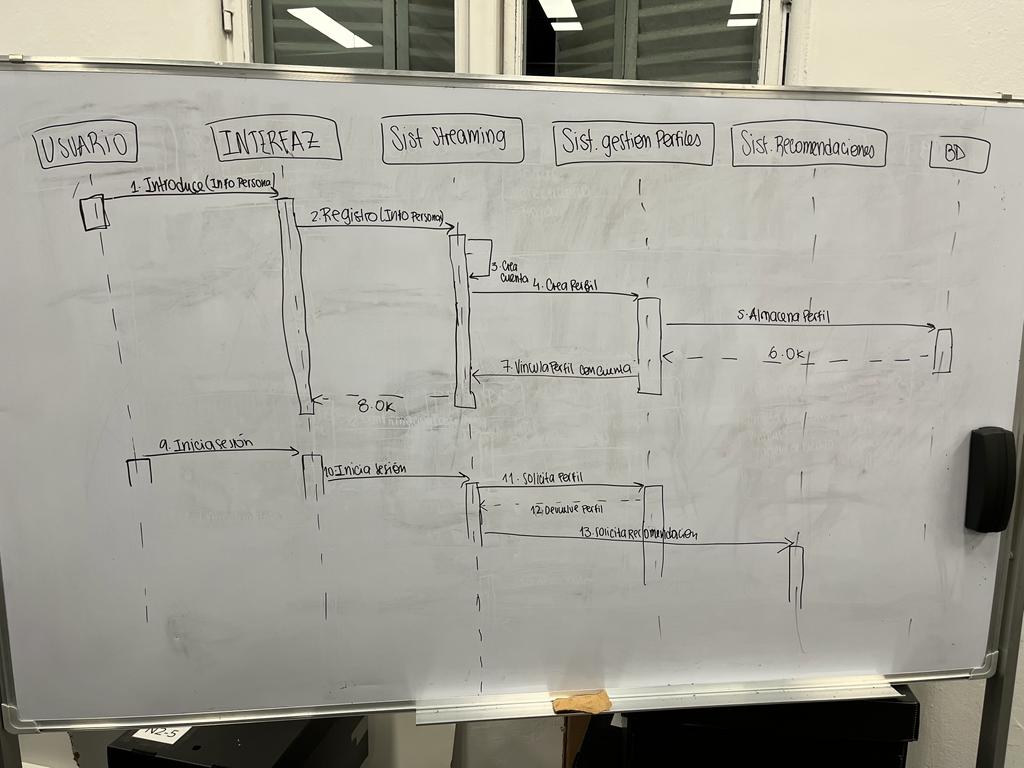 USUARIO
INTERFAZ
Sist Streaming
Sist. gestión Perfiles
Sist. Recomendaciones
BD
1. Introduce (Info Personal)
2. Registro (Info Personal)
3. Crea
cuenta
4. Crea Perfil
5. Almacena Perfil
6. OK
7. Vincula Perfil con cuenta
8. OK
9. Inicia sesión
10. Inicia sesión
11. Solicita Perfil
12. Devuelve Perfil
13. Solicita Recomendación
N2-5